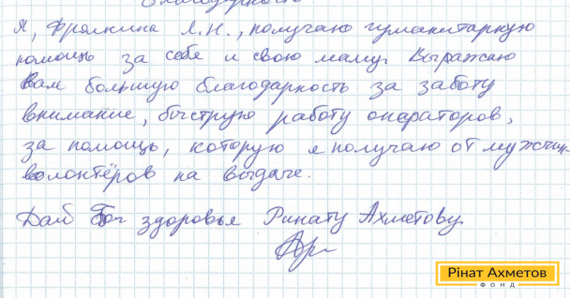 Благодарность
Я, Фролкина Л.Н., получаю гуманитарную
помощь за себя и свою маму. Выражаю
Вам большую благодарность за заботу
внимание, быструю работу операторов,
за помощь, которую я получаю от мужчин-
волонтёров на выдаче.
Дай Бог здоровья Ринату Ахметову.
Рінат Ахметов
ФОНД